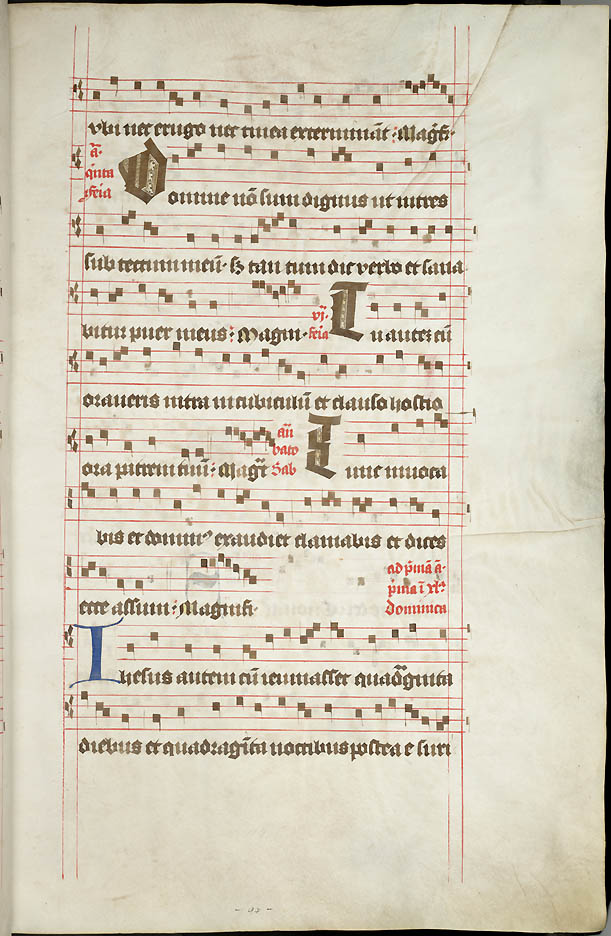 vbi nec erugo nec tinea exterminat: Magfi.
a. qinta feia
Domine nō sum dignus ut intres
sub tectum meū. Sz tan tum dic verbo et sana
bitur puer meus: Magni. vj. feia Tu autez cū
oraveris intra in cubiculū et clauso hostio
ora patrem tuū: Magt Sab bato añ Tunc invoca
bis et dominꝰ exaudiet clamabis et dicet
ecce assum: Magnifi.
ad pmā a. pma ī xl. dominica
Ihesus autem cū ieiunasset quadraginta
diebus et quadragīta noctibus postea e suri